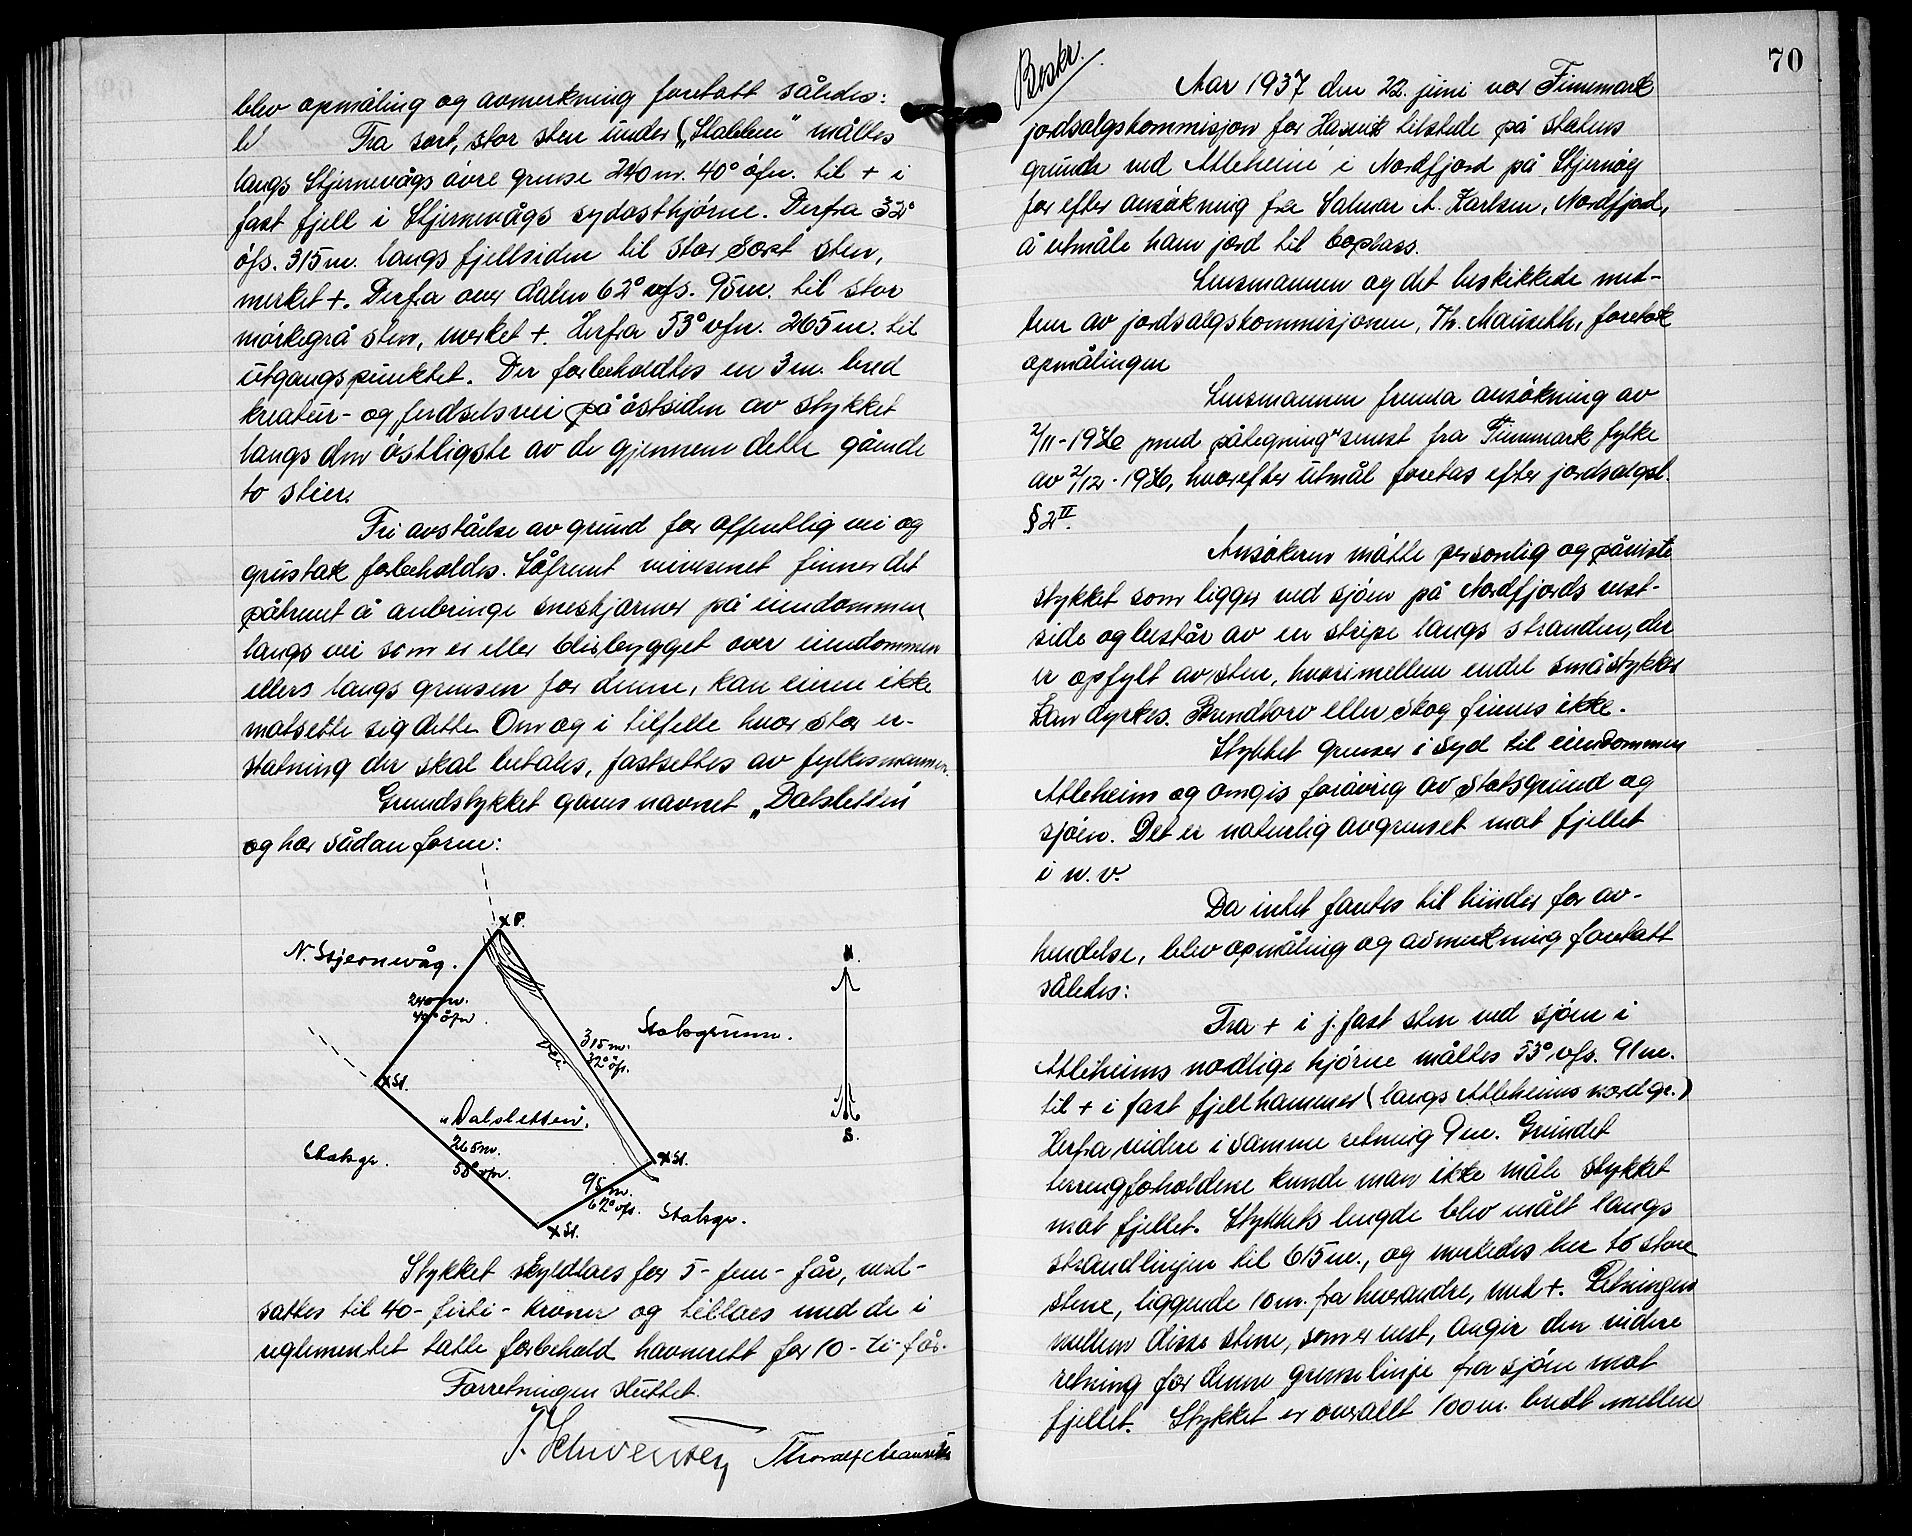 blev opmåling og avmerkning foretatt således:
Fra sort, stor sten under „Stabben" måltes
langs Stjernevågs övre grense 240 m. 40° öfn. til + i
fast fjell i Stjernevågs sydösthjörne. Derfra 32°
öfs. 315 m. langs fjellsiden til stor sort sten,
merket +. Derfra over dalen 62° vfs. 95 m. til stor
mörkegrå sten, merket +. Herfra 53° vfn. 265 m. til
utgangspunktet. Der forbeholdtes en 3 m. bred
kreatur- og ferdselsvei på östsiden av stykket
langs den östligste av de gjennem dette gående
to stier.
Fri avståelse av grund for offentlig vei og
grustak forbeholdes. Såfremt veivesenet finner det
påkrevet å anbringe sneskjermer på eiendommen
langs vei som er eller blir bygget over eiendommen
ellers langs grensen for denne, kan eieren ikke
motsette sig dette. Om og i tilfelle hvor stor er-
statning der skal betales, fastsettes av fylkesmannen.
Grundstykket gaves navnet „Dalsletten"
og har sådan form:
x P.
N. Stjernevåg.
N.
240 m.
40° öfn.
Statsgrunn.
315 m.
32° öfs.
Vei
x St.
„Dalsletten".
S.
265 m.
53° vfn.
Statsgr.
x St.
95 m.
62° vfs.
Statsgr.
x St.
Stykket skyldtaes for 5 - fem - får, verd-
sattes til 40 - firti - kroner og tillaes med de i
reglementet tatte forbehold havnerett for 10 - ti - får.
Forretningen sluttet.
Thoralf Mauseth
70
Beskr.
Aar 1937 den 22. juni var Finnmark
jordsalgskommisjon for Hasvik tilstede på statens
grund ved Atleheim i Nordfjord på Stjernöy
for efter ansökning fra Salmar A. Karlsen, Nordfjord,
å utmåle ham jord til boplass.
Lensmannen og det beskikkede med-
lem av jordsalgskommisjonen, Th. Mauseth, foretok
opmålingen
Lensmannen fremla ansökning av
2/11-1936 med påtegning senest fra Finnmark fylke
av 2/12-1936, hvorefter utmål foretas efter jordsalgsl.
§ 2 II.
Ansökeren mötte personlig og påviste
stykket som ligger ved sjöen på Nordfjords vest-
side og består av en stripe langs stranden, der
er opfylt av sten, hvorimellem endel småstykker
kan dyrkes. Brendtorv eller skog finnes ikke.
Stykket grenser i syd til eiendommen
Atleheim og omgis forövrig av Statsgrund og
sjöen. Det er naturlig avgrenset mot fjellet
i n. v.
Da intet fantes til hinder for av-
hendelse, blev opmåling og avmerkning foretatt
således:
Fra + i j. fast sten ved sjöen i
Atleheims nordlige hjörne måltes 53° vfs. 91 m.
til + i fast fjellhammer (langs Atleheims nordgr.)
Herfra videre i samme retning 9 m. Grundet
terrengforholdene kunde man ikke måle stykket
mot fjellet. Stykkets lengde blev målt langs
strandlinjen til 615 m., og merkedes her to store
stene, liggende 10 m. fra hverandre, med +. Retningen
mellem disse stene, som er vest, angir den videre
retning for denne grenselinje fra sjöen mot
fjellet. Stykket er overallt 100 m. bredt mellem